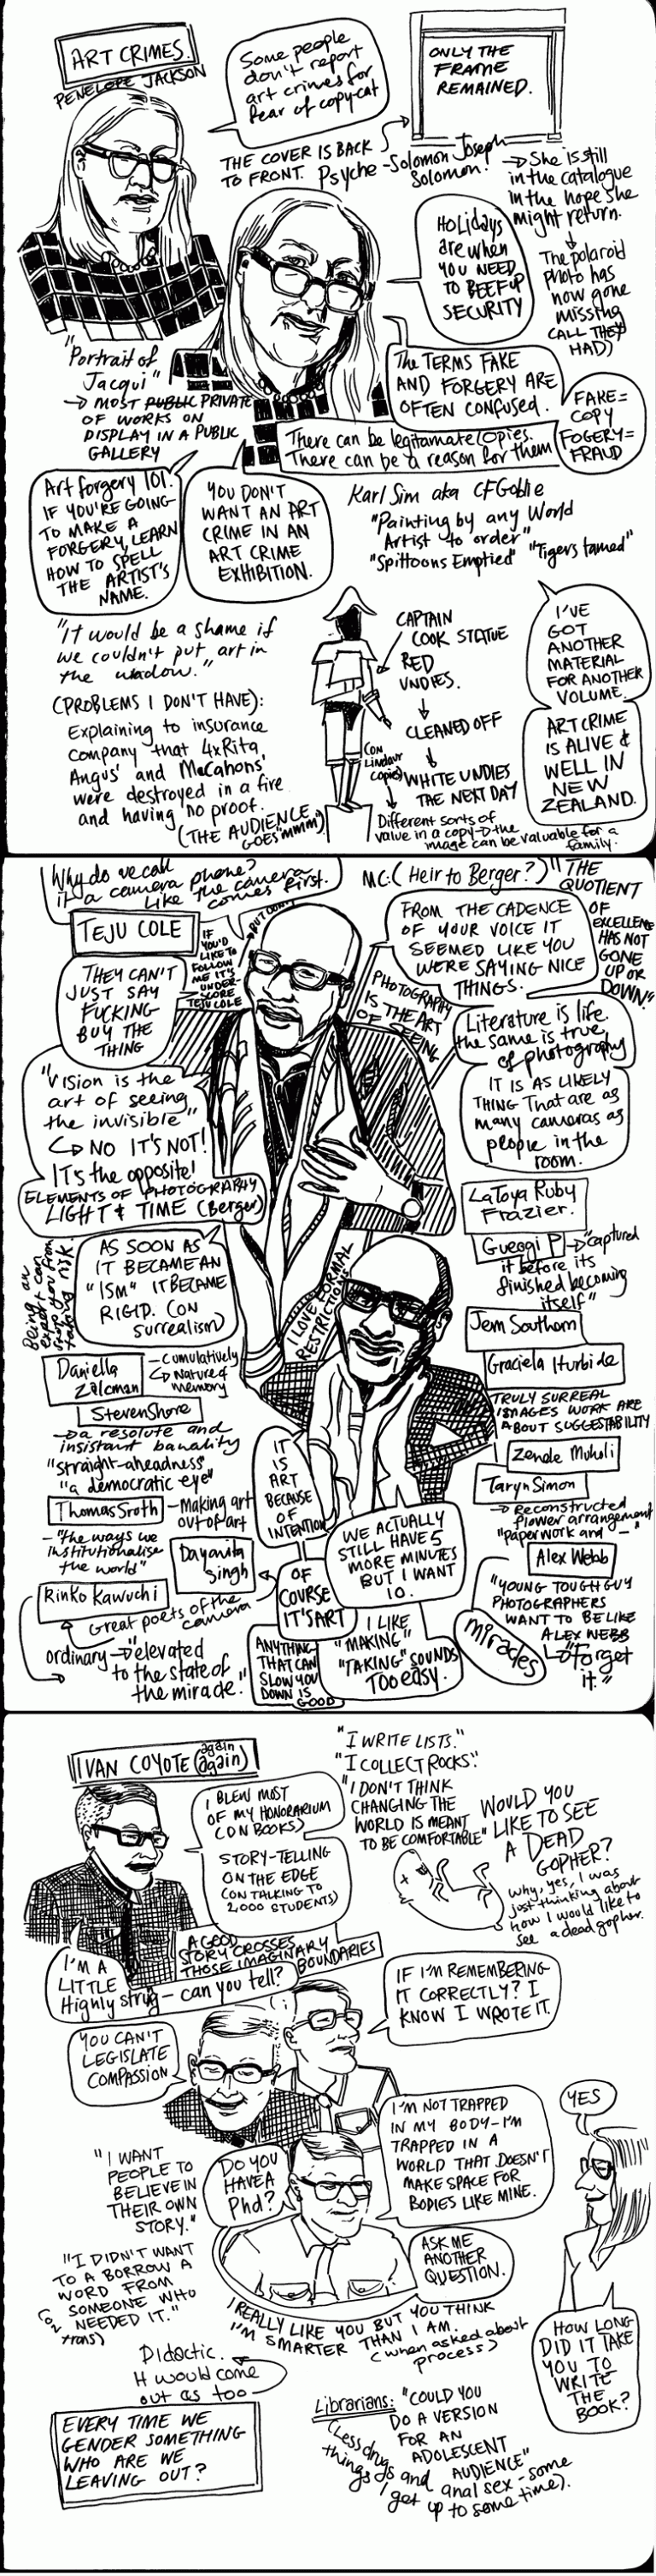 ART CRIMES.
PENELOPE JACKSON
Some people
don't report
art crimes for
fear of copy-cat
ONLY THE
FRAME
REMAINED.
THE COVER IS BACK
TO FRONT.
Psyche - Solomon Joseph
Solomon.
She is still
in the catalogue
in the hope she
might return.
The polaroid
photo has
now gone
missing
(ALL THEY
HAD)
HOLIDAYS
are when
YOU NEED
TO BEEF UP
SECURITY
"Portrait of
Jacqui"
MOST PUBLIC PRIVATE
OF WORKS ON
DISPLAY IN A PUBLIC
GALLERY
The TERMS FAKE
AND FORGERY ARE
OFTEN CONFUSED.
FAKE =
COPY
FOGERY =
FRAUD
There can be legitamate copies.
There can be a reason for them
Art forgery 101.
IF YOU'RE GOING
TO MAKE A
FORGERY, LEARN
HOW TO SPELL
THE ARTIST'S
NAME.
YOU DON'T
WANT AN ART
CRIME IN AN
ART CRIME
EXHIBITION.
Karl Sim aka CF Goldie
"Painting by any World
Artist to order"
"Spittoons Emptied" "Tigers tamed"
"It would be a shame if
we couldn't put art in
the window."
(PROBLEMS I DON'T HAVE):
Explaining to insurance
company that 4x Rita
Angus' and McCahons'
were destroyed in a fire
and having no proof.
(THE AUDIENCE
GOES "MMM")
CAPTAIN
COOK STATUE
RED
UNDIES.
CLEANED OFF
WHITE UNDIES
THE NEXT DAY
(ON
Lindauer
copies)
Different sorts of
value in a copy - the
image can be valuable for a
family.
I'VE
GOT
ANOTHER
MATERIAL
FOR ANOTHER
VOLUME.
ART CRIME
IS ALIVE &
WELL IN
NEW
ZEALAND.
Why do we call
it a camera phone?
Like the camera
comes first.
TEJU COLE
IF
YOU'D
LIKE TO
FOLLOW
ME IT'S
UNDER-
SCORE
TEJU COLE
BUT DON'T
MC: (Heir to Berger?)
"THE
QUOTIENT
OF
EXCELLENCE
HAS NOT
GONE
UP OR
DOWN."
FROM THE CADENCE
OF YOUR VOICE IT
SEEMED LIKE YOU
WERE SAYING NICE
THINGS.
THEY CAN'T
JUST SAY
FUCKING
BUY THE
THING
PHOTOGRAPHY
IS THE ART
OF SEEING
Literature is life.
the same is true
of photography
IT IS AS LIKELY
THING That are as
many cameras as
people in the
room.
"Vision is the
art of seeing
the invisible"
NO IT'S NOT!
IT'S the opposite!
ELEMENTS OF PHOTOGRAPHY
LIGHT & TIME (Berger)
LaToya Ruby
Frazier.
Gueorgi P
"captured
it before its
finished becoming
itself"
Being an
expert can
stop you from
taking risk.
AS SOON AS
IT BECAME AN
"ISM" IT BECAME
RIGID. (ON
surrealism)
I LOVE FORMAL
RESTRICTION
Jem Southam
Graciela Iturbide
TRULY SURREAL
IMAGES WORK ARE
ABOUT SUGGESTABILITY
Daniella
Zalcman
- cumulatively
Nature of
memory
Steven Shore
a resolute and
insistant banality
"straight-aheadness"
"a democratic eye"
Zanele Muholi
Taryn Simon
Reconstructed
flower arrangement
"paperwork and -"
Thomas Sroth
- Making art
out of art
- "the ways we
institutionalise
the world"
Dayanita
Singh
IT
IS
ART
BECAUSE
OF
INTENTION
OF
COURSE
IT'S ART
WE ACTUALLY
STILL HAVE 5
MORE MINUTES
BUT I WANT
10.
Alex Webb
"YOUNG TOUGH GUY
PHOTOGRAPHERS
WANT TO BE LIKE
ALEX WEBB
"forget
it."
miracles
Rinko Kawuchi
Great poets of the
camera
ordinary - "elevated
to the state of
the miracle."
ANYTHING
THAT CAN
SLOW YOU
DOWN IS
GOOD
I LIKE
"MAKING"
"TAKING" SOUNDS
TOO easy.
IVAN COYOTE (again
again)
"I WRITE LISTS."
"I COLLECT ROCKS."
"I DON'T THINK
CHANGING THE
WORLD IS MEANT
TO BE COMFORTABLE"
I BLEW MOST
OF MY HONORARIUM
(ON BOOKS)
STORY-TELLING
ON THE EDGE
(ON TALKING TO
2,000 STUDENTS)
WOULD YOU
LIKE TO SEE
A DEAD
GOPHER?
Why, yes, I was
just thinking about
how I would like to
see a dead gopher.
A GOOD
STORY CROSSES
THOSE IMAGINARY
BOUNDARIES
I'M A
LITTLE
Highly strug - can you tell?
IF I'M REMEMBERING
IT CORRECTLY? I
KNOW I WROTE IT.
YOU CAN'T
LEGISLATE
COMPASSION
I'M NOT TRAPPED
IN MY BODY - I'M
TRAPPED IN A
WORLD THAT DOESN'T
MAKE SPACE FOR
BODIES LIKE MINE.
YES
"I WANT
PEOPLE TO
BELIEVE IN
THEIR OWN
STORY."
DO YOU
HAVE A
Phd?
ASK ME
ANOTHER
QUESTION.
"I DIDN'T WANT
TO A BORROW A
WORD FROM
SOMEONE WHO
NEEDED IT."
(on
trans)
I REALLY LIKE YOU BUT YOU THINK
I'M SMARTER THAN I AM.
(when asked about
process)
HOW LONG
DID IT TAKE
YOU TO
WRITE
THE
BOOK?
Didactic.
It would come
out as too
EVERY TIME WE
GENDER SOMETHING
WHO ARE WE
LEAVING OUT?
Librarians: "COULD YOU
DO A VERSION
FOR AN
ADOLESCENT
AUDIENCE"
(Less drugs and anal sex - some
things I get up to some time).